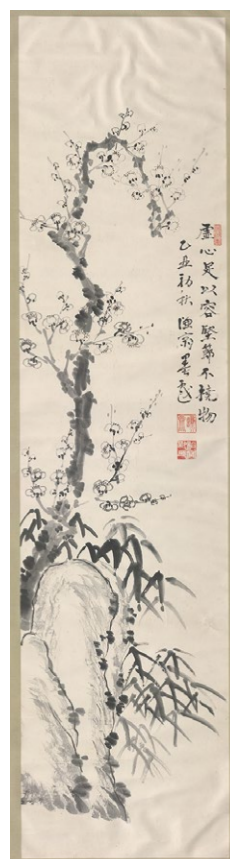 虛心足以容堅節不撓物
乙丑初秋翁墨戲